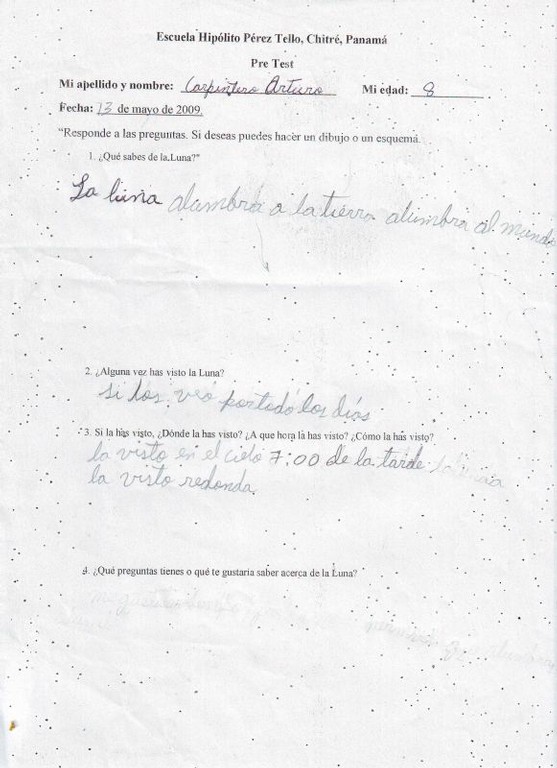 Escuela Hipólito Pérez Tello, Chitré, Panamá
Pre Test
Mi apellido y nombre: Carpintero Arturo Mi edad: 8
Fecha: 13 de mayo de 2009.
"Responde a las preguntas. Si deseas puedes hacer un dibujo o un esquema.
1. ¿Qué sabes de la Luna?"
La luna alambra a la tierra alumbra al mundo
2. ¿Alguna vez has visto la Luna?
si los veo portodo los días
3. Si la has visto, ¿Dónde la has visto? ¿A que hora la has visto? ¿Cómo la has visto?
la visto en el cielo 7:00 de la tarde
la visto redonda
4. ¿Qué preguntas tienes o qué te gustaría saber acerca de la Luna?